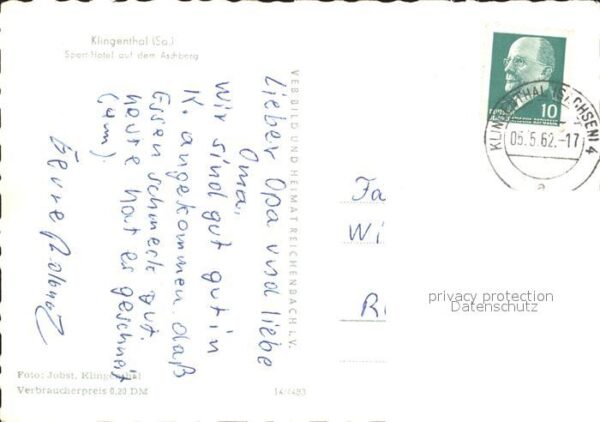 Klingenthal (Sa.)
Sport-Hotel auf dem Aschberg
Lieber Opa und liebe
Oma,
wir sind gut gut in
K. angekommen. daß
Essen schmeck gut.
heute hat es geschneit
(4m).
VEB BILD UND HEIMAT REICHENBACH I. V.
Foto: Jobst, Klingenthal
Verbraucherpreis 0,20 DM
10
KLINGENTHAL (SACHSEN) 4
05.5.62.-17
a
Fa
Wi
R
privacy protection
Datenschutz